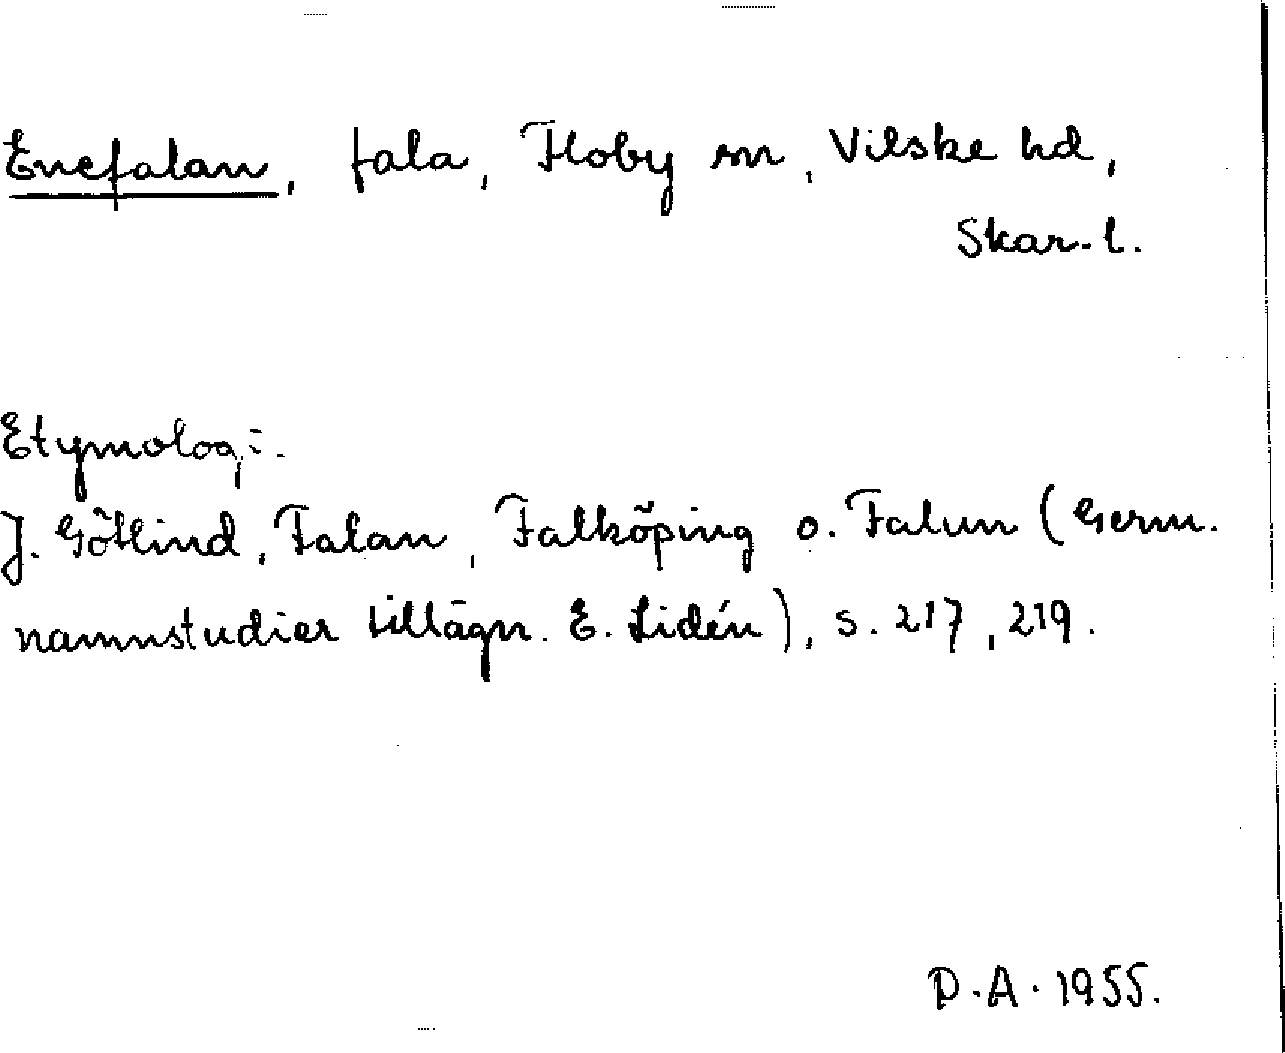 Enefalan, fala, Floby sn, Vilske hd,
Skar. l.
Etymologi:
J. Götlind, Falan, Falköping o. Falun (Germ.
namnstudier tillägn. E. Lidén), s. 217, 219.
D.A. 1955.